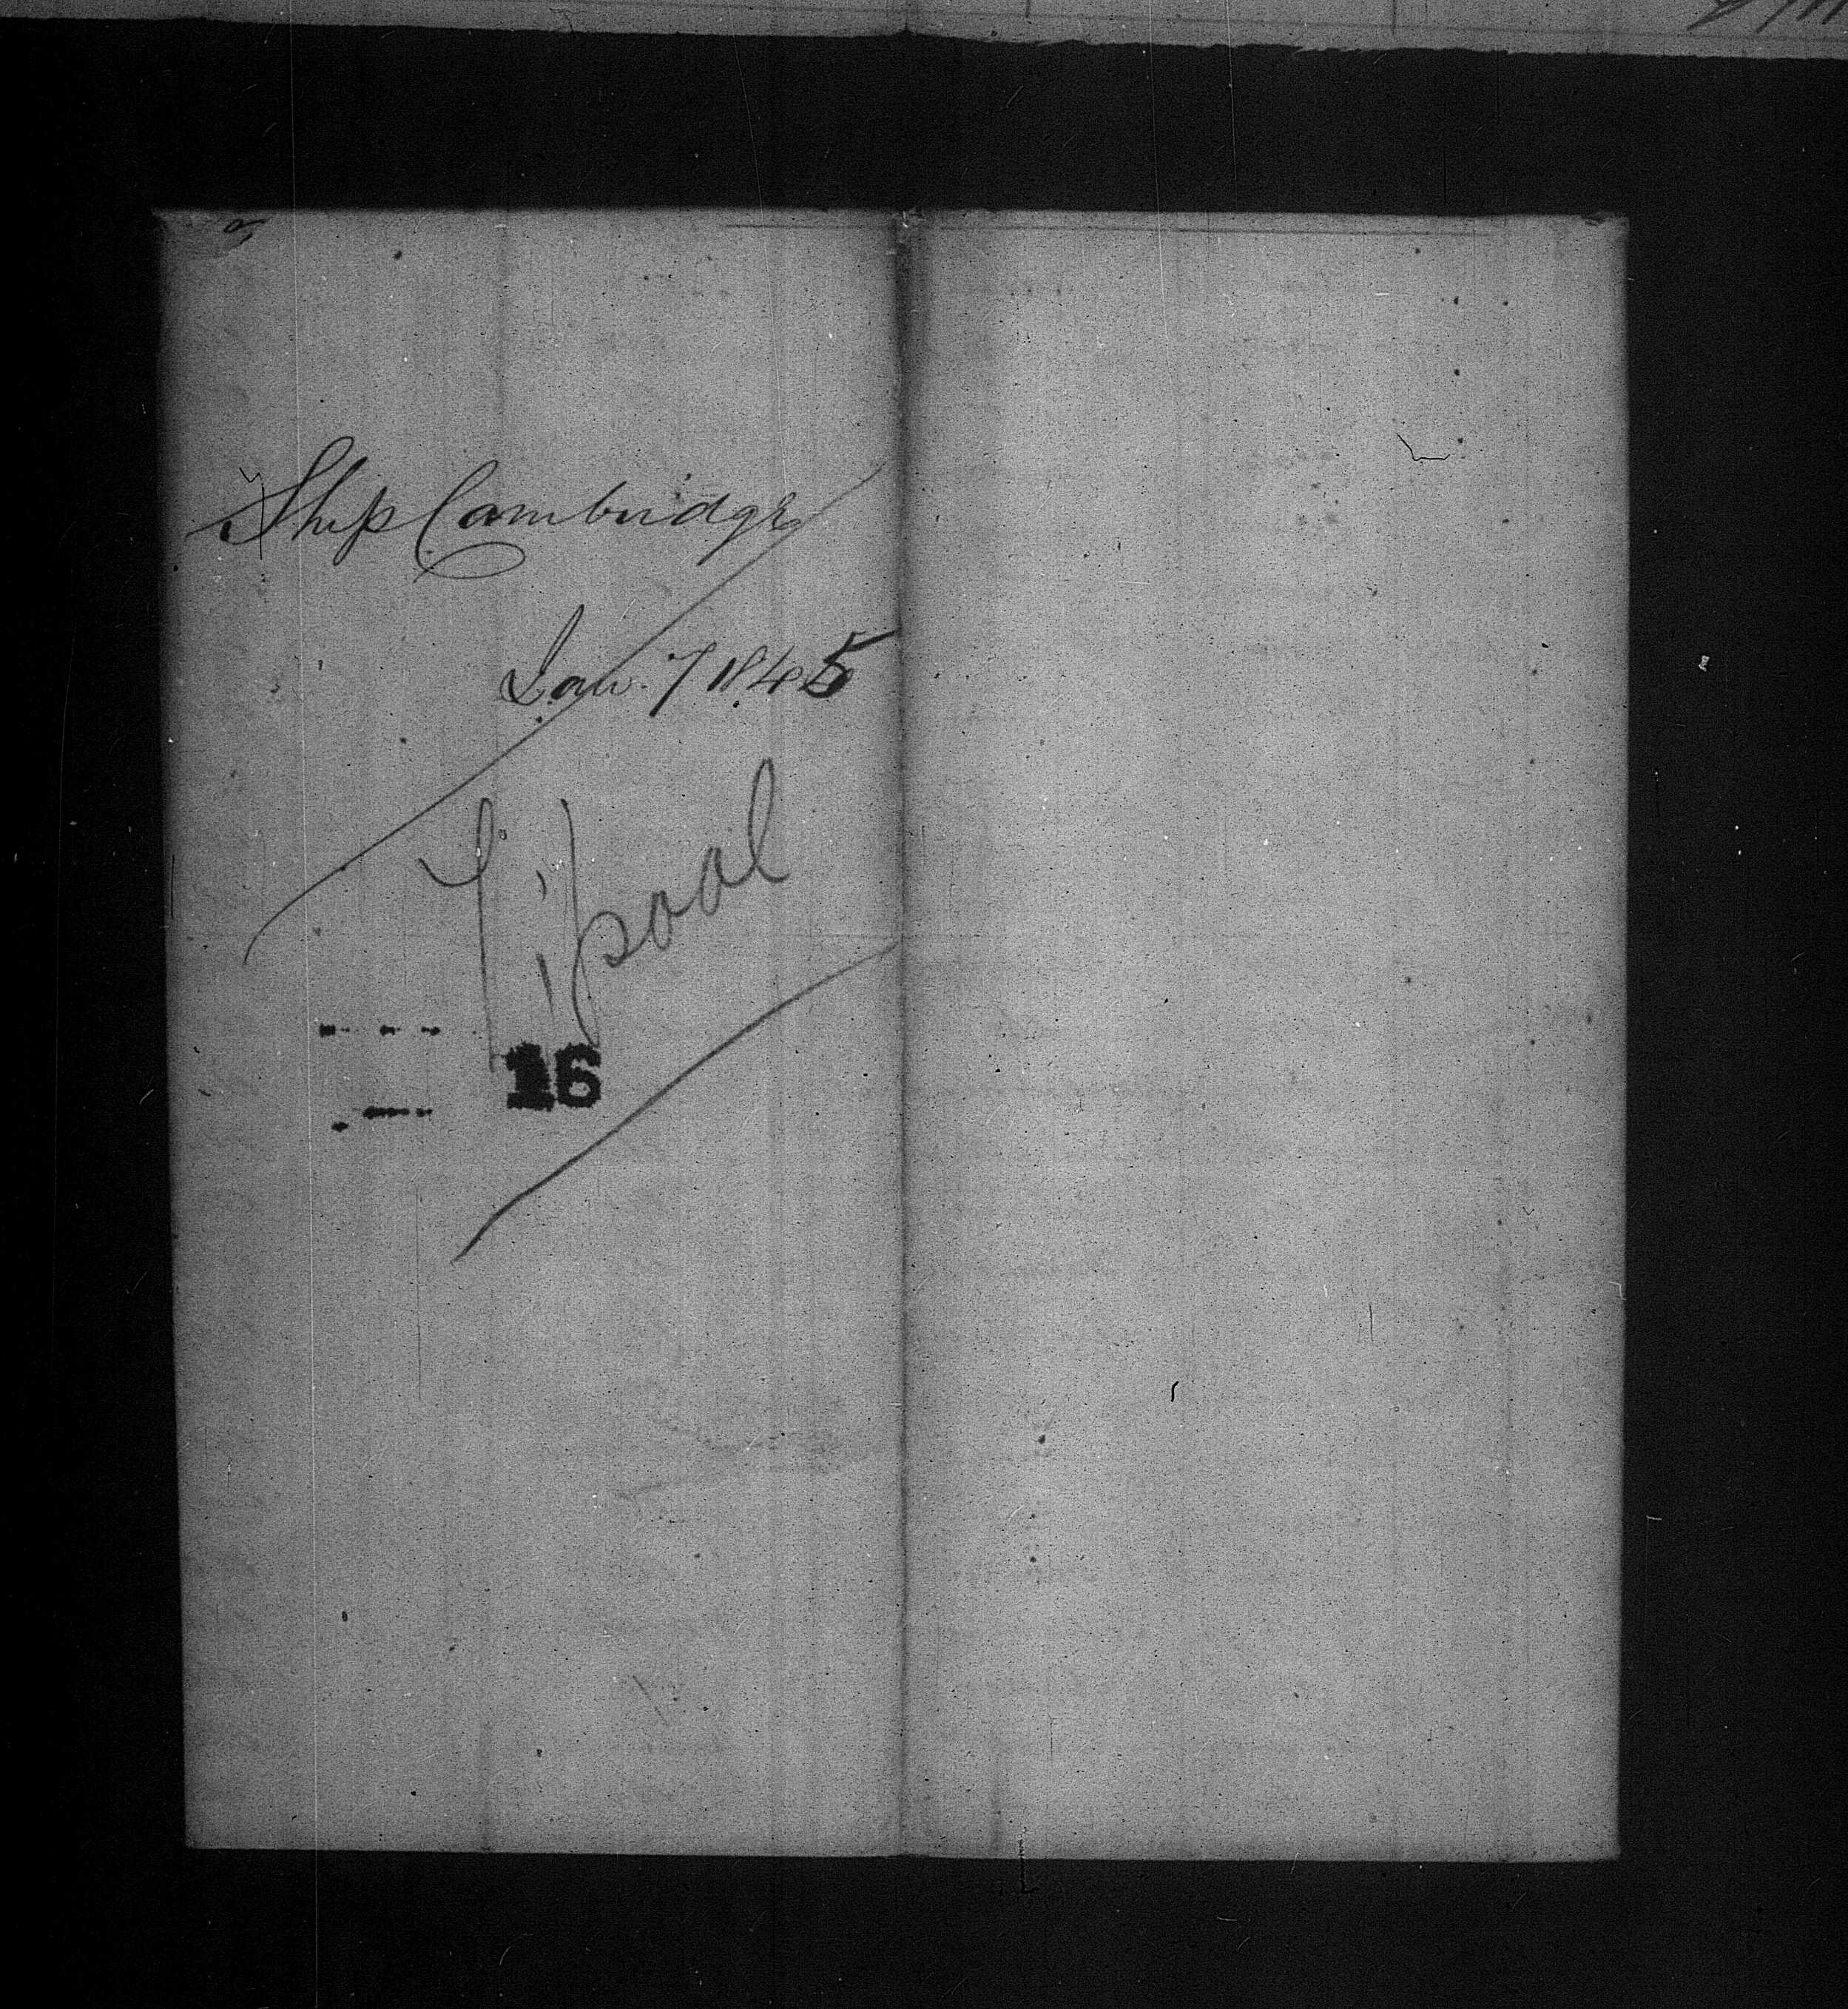 Ship Cambridge
Jan. 7 1845
L'pool
16